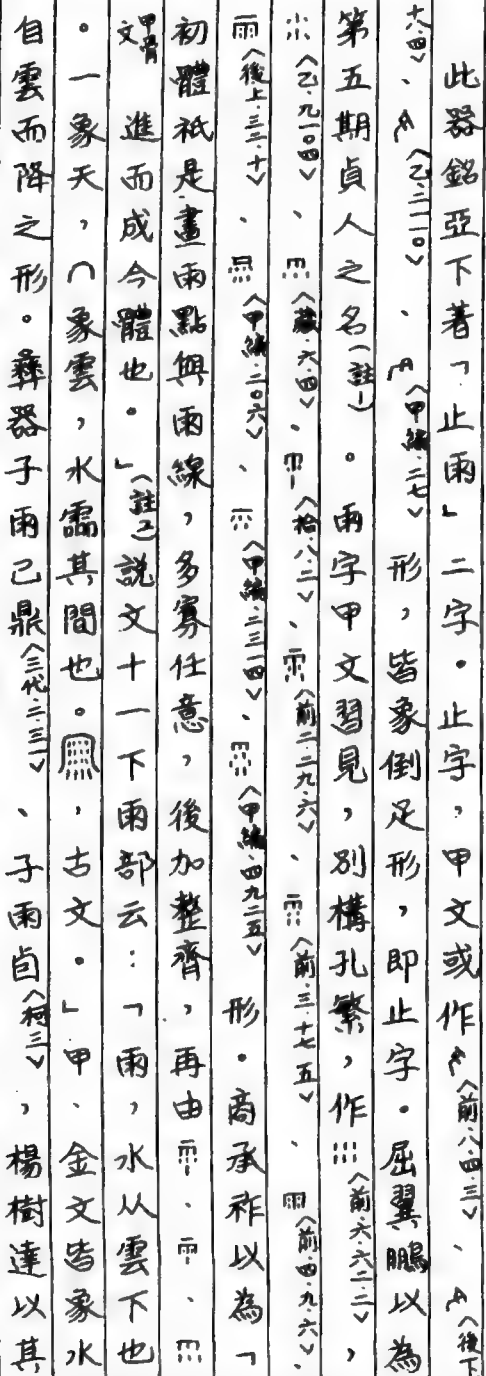 此器銘亞下著「止雨」二字。止字,甲文或作〈前.八.四.三〉、〈後下
十八.四〉、〈乙.二一一〇〉、〈甲編.二七〉形,皆象倒足形,即止字。屈翼鵬以為
第五期貞人之名(註1)。雨字甲文習見,別構孔繁,作〈前.六.六二.二〉,
〈乙.九一〇四〉、〈藏.六.四〉、〈拾.八.二〉、〈前二.二九.六〉、〈前.三.十七五〉、〈前.四.九.六〉、
〈後上.三二.十〉、〈甲編.二〇六〉、〈甲編.二三一四〉、〈甲編.四九二五〉形。商承祚以為「
初體祇是畫雨點與雨線,多寡任意,後加整齊,再由、、
甲骨文 進而成今體也。」(註2)説文十一下雨部云:「雨,水从雲下也
。一象天,冂象雲,水霝其間也。,古文。」甲、金文皆象水
自雲而降之形。彝器子雨己鼎〈三代.二.三一〉、子雨卣〈柯三〉,楊樹達以其